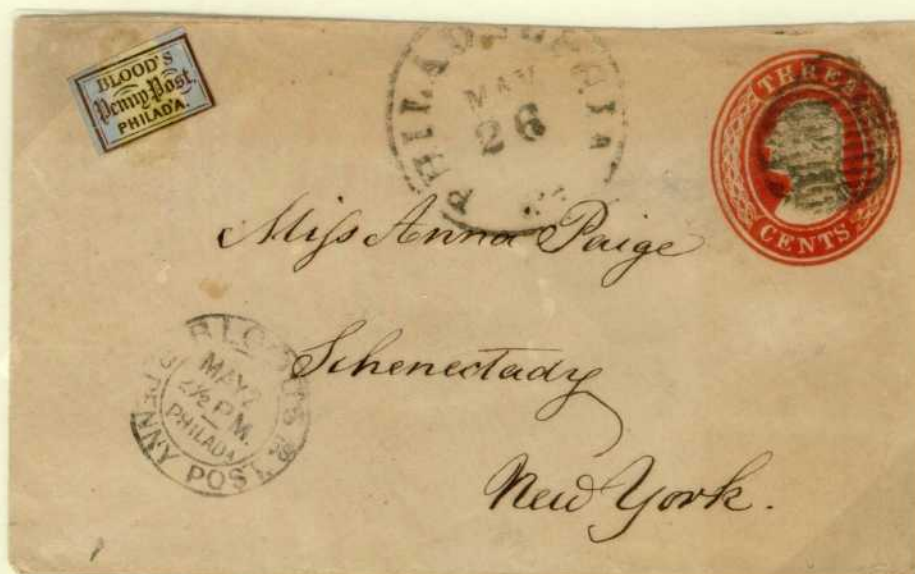 BLOOD'S
Penny Post,
PHILAD'A.
PHILADELPHIA
MAY
26
THREE
CENTS
Miss Anna Paige
Schenectady
New York.
BLOOD'S
MAY
2½ P.M.
PHILADA
PENNY POST